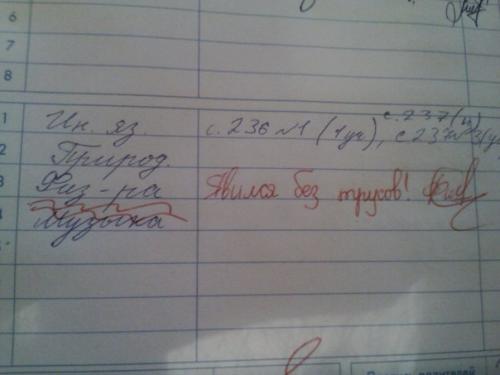 6
7
8
1 Ин. яз. с. 236 №1 (1 уч), с 237 №3 (у
с. 237 (у)
2 Природ.
3 Физ-ра Явился без трусов!
4 Музыка
5